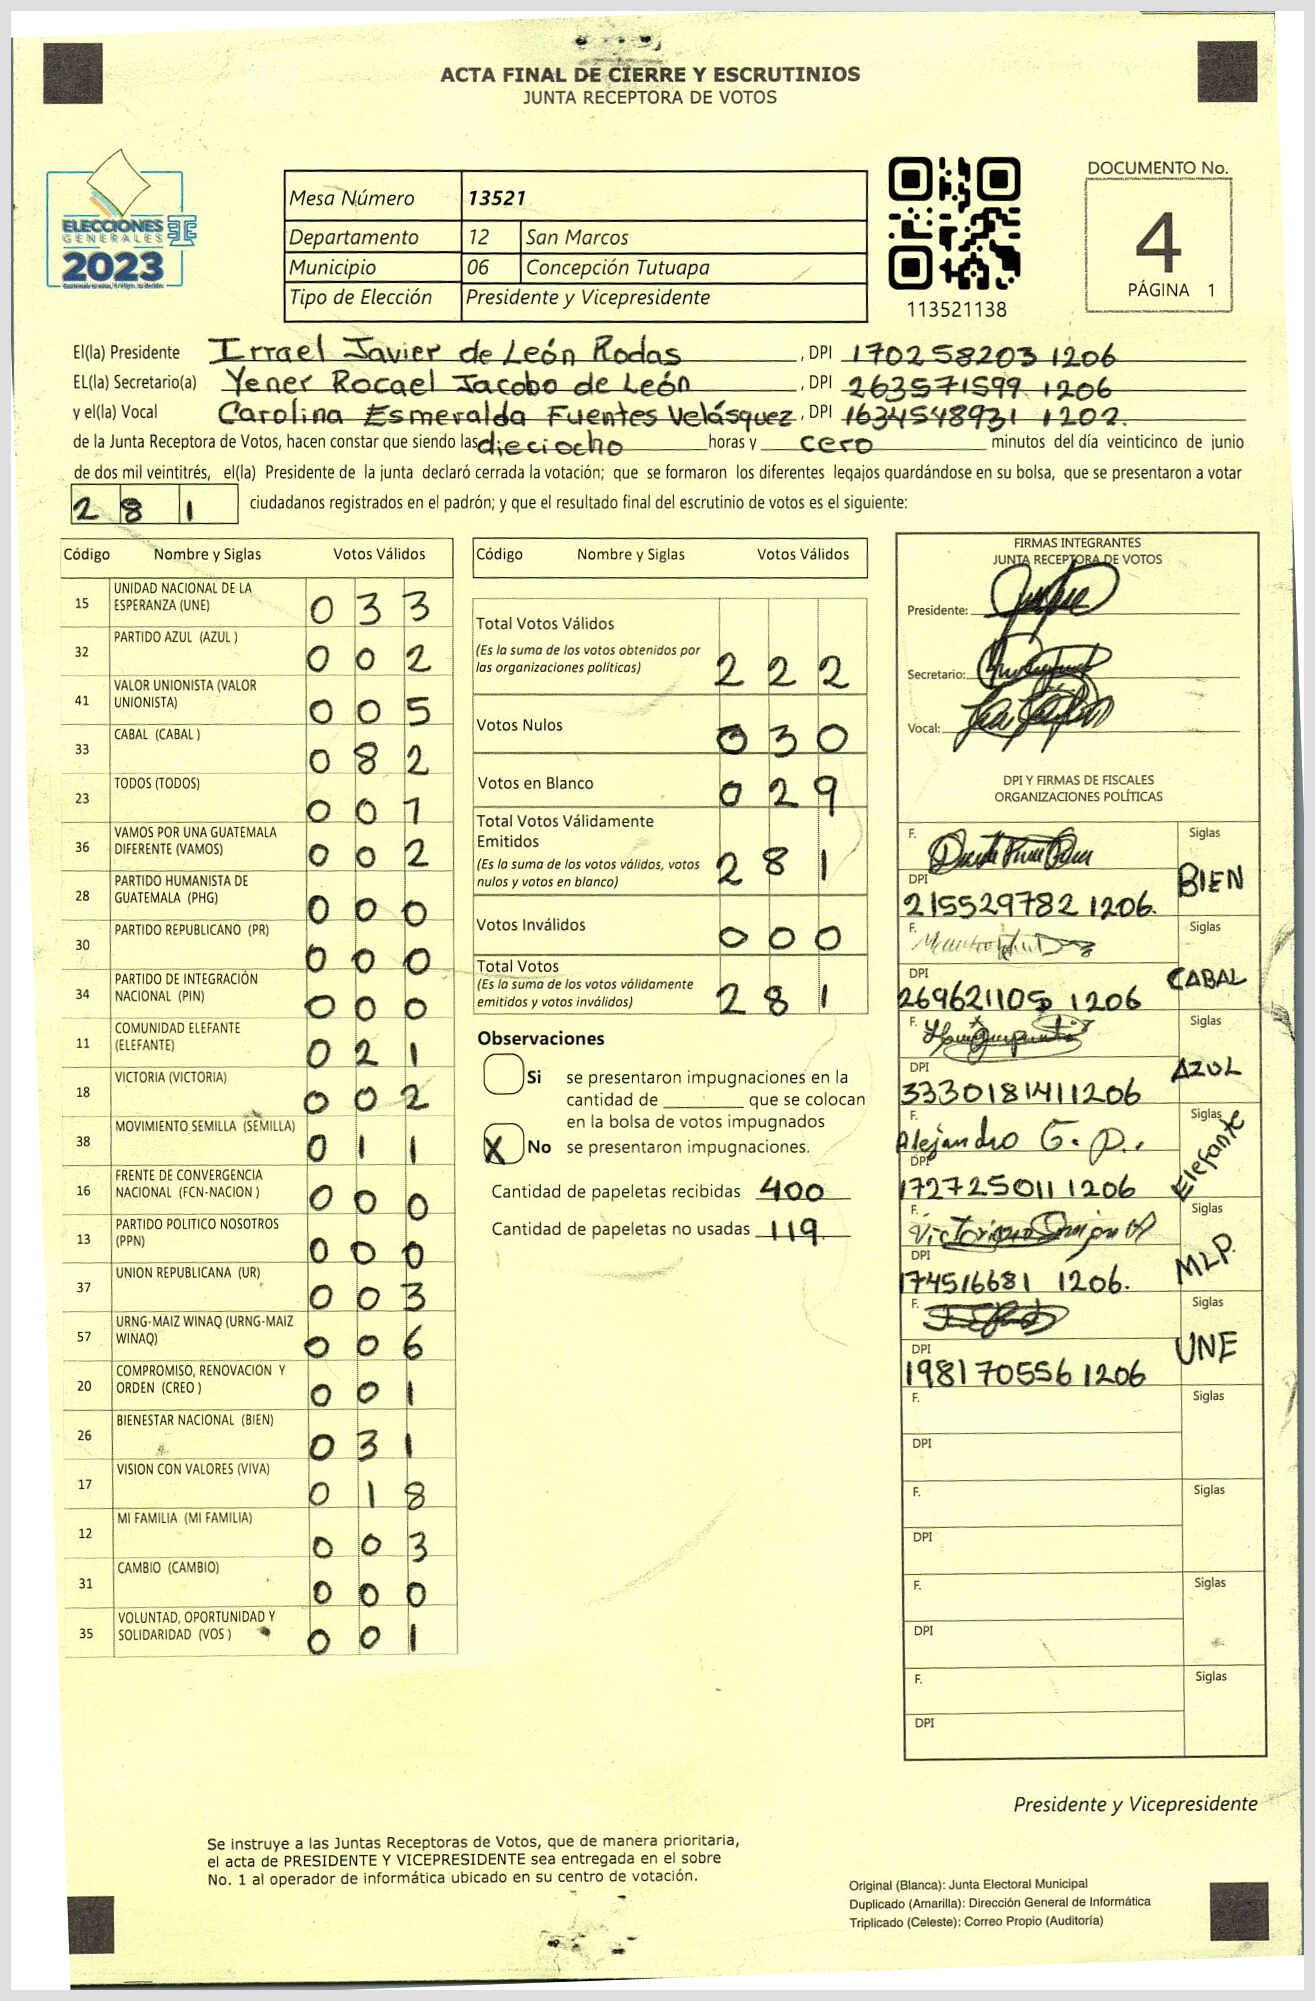 ACTA FINAL DE CIERRE Y ESCRUTINIOS
JUNTA RECEPTORA DE VOTOS
ELECCIONES
GENERALES
2023
Mesa Número 13521
Departamento 12 San Marcos
Municipio 06 Concepción Tutuapa
Tipo de Elección Presidente y Vicepresidente
113521138
DOCUMENTO No.
4
PÁGINA 1
El(la) Presidente Irrael Javier de León Rodas , DPI 170258203 1206
EL(la) Secretario(a) Yener Rocael Jacobo de León , DPI 263571599 1206
y el(la) Vocal Carolina Esmeralda Fuentes Velásquez , DPI 1634548931 1202.
de la Junta Receptora de Votos, hacen constar que siendo las dieciocho horas y cero minutos del día veinticinco de junio
de dos mil veintitrés, el(la) Presidente de la junta declaró cerrada la votación; que se formaron los diferentes legajos guardándose en su bolsa, que se presentaron a votar
2 8 1 ciudadanos registrados en el padrón; y que el resultado final del escrutinio de votos es el siguiente:
Código Nombre y Siglas Votos Válidos
15 UNIDAD NACIONAL DE LA
ESPERANZA (UNE) 0 3 3
32 PARTIDO AZUL (AZUL ) 0 0 2
41 VALOR UNIONISTA (VALOR
UNIONISTA) 0 0 5
33 CABAL (CABAL ) 0 8 2
23 TODOS (TODOS) 0 0 1
36 VAMOS POR UNA GUATEMALA
DIFERENTE (VAMOS) 0 0 2
28 PARTIDO HUMANISTA DE
GUATEMALA (PHG) 0 0 0
30 PARTIDO REPUBLICANO (PR) 0 0 0
34 PARTIDO DE INTEGRACIÓN
NACIONAL (PIN) 0 0 0
11 COMUNIDAD ELEFANTE
(ELEFANTE) 0 2 1
18 VICTORIA (VICTORIA) 0 0 2
38 MOVIMIENTO SEMILLA (SEMILLA) 0 1 1
16 FRENTE DE CONVERGENCIA
NACIONAL (FCN-NACION ) 0 0 0
13 PARTIDO POLITICO NOSOTROS
(PPN) 0 0 0
37 UNION REPUBLICANA (UR) 0 0 3
57 URNG-MAIZ WINAQ (URNG-MAIZ
WINAQ) 0 0 6
20 COMPROMISO, RENOVACION Y
ORDEN (CREO ) 0 0 1
26 BIENESTAR NACIONAL (BIEN) 0 3 1
17 VISION CON VALORES (VIVA) 0 1 8
12 MI FAMILIA (MI FAMILIA) 0 0 3
31 CAMBIO (CAMBIO) 0 0 0
35 VOLUNTAD, OPORTUNIDAD Y
SOLIDARIDAD (VOS ) 0 0 1
Código Nombre y Siglas Votos Válidos
Total Votos Válidos
(Es la suma de los votos obtenidos por
las organizaciones políticas) 2 2 2
Votos Nulos 0 3 0
Votos en Blanco 0 2 9
Total Votos Válidamente
Emitidos
(Es la suma de los votos válidos, votos
nulos y votos en blanco) 2 8 1
Votos Inválidos 0 0 0
Total Votos
(Es la suma de los votos válidamente
emitidos y votos inválidos) 2 8 1
Observaciones
Si se presentaron impugnaciones en la
cantidad de ________ que se colocan
en la bolsa de votos impugnados
X No se presentaron impugnaciones.
Cantidad de papeletas recibidas 400
Cantidad de papeletas no usadas 119.
FIRMAS INTEGRANTES
JUNTA RECEPTORA DE VOTOS
Presidente:
Secretario:
Vocal:
DPI Y FIRMAS DE FISCALES
ORGANIZACIONES POLÍTICAS
F. Siglas
DPI BIEN
215529782 1206.
F. Siglas
DPI CABAL
269621105 1206
F. Siglas
DPI AZUL
333018141 1206
F. Alejandro G. P. Siglas
DPI Elefante
172725011 1206
F. Siglas
DPI MLP.
174516681 1206.
F. Siglas
DPI UNE
198170556 1206
F.
DPI
F. Siglas
DPI
F. Siglas
DPI
F. Siglas
DPI
Presidente y Vicepresidente
Se instruye a las Juntas Receptoras de Votos, que de manera prioritaria,
el acta de PRESIDENTE Y VICEPRESIDENTE sea entregada en el sobre
No. 1 al operador de informática ubicado en su centro de votación.
Original (Blanca): Junta Electoral Municipal
Duplicado (Amarilla): Dirección General de Informática
Triplicado (Celeste): Correo Propio (Auditoría)